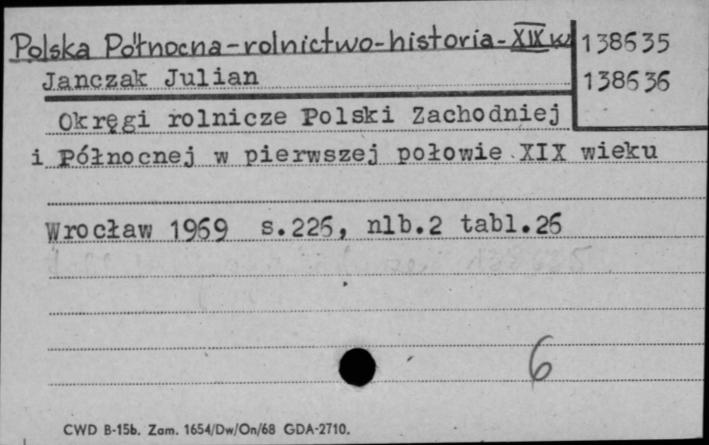 Polska Północna-rolnictwo-historia-XIX w 138635
Janczak Julian 138636
Okręgi rolnicze Polski Zachodniej
i Północnej w pierwszej połowie XIX wieku
Wrocław 1969 s.226, nlb.2 tabl.26
6
CWD B-15b. Zam. 1654/Dw/On/68 GDA-2710.